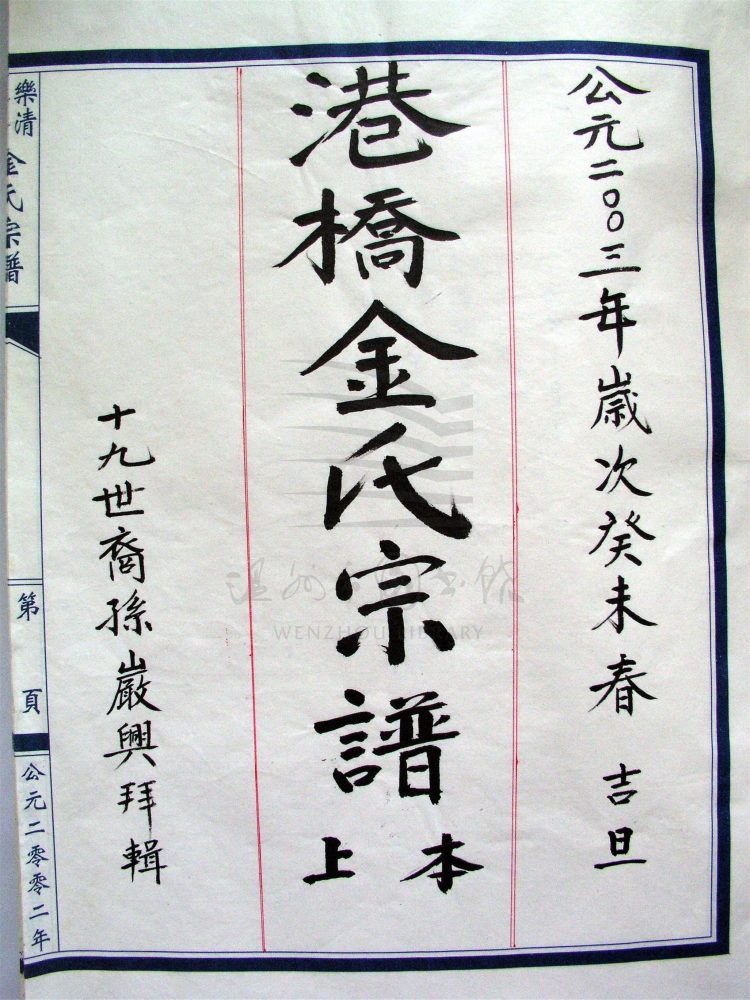 公元二〇〇三年歲次癸未春 吉旦
港橋金氏宗譜
上本
十九世裔孫嚴興拜輯
樂清
金氏宗譜
第 頁
公元二零零二年
温州图书馆
WENZHOU LIBRARY